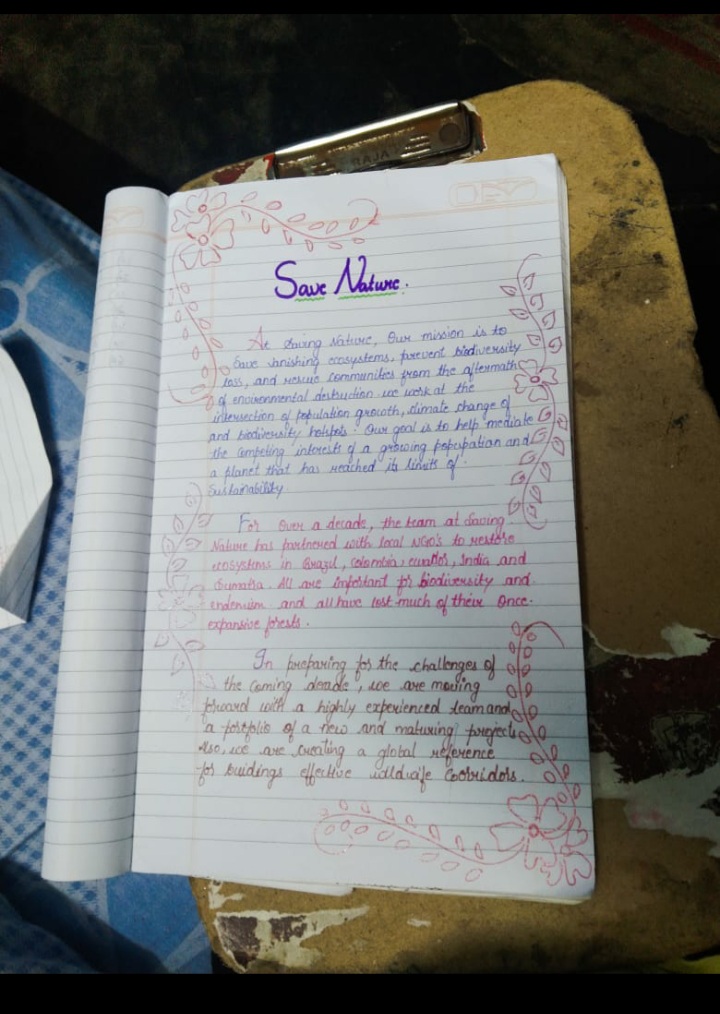 Save Nature.
At Saving Nature, Our mission is to
Save vanishing ecosystems, prevent biodiversity
loss, and rescue communities from the aftermath
of environmental destruction we work at the
intersection of population growth, climate change of
and biodiversity hotspots. Our goal is to help mediate
the competing interests of a growing population and
a planet that has reached its limits of
Sustainability
For Over a decade, the team at Saving
Nature has partnered with local NGO's to restore
ecosystems in Brazil, colombia, India and
Sumatra. All are important for biodiversity and
endemism and all have lost much of their Once-
expansive forests.
In preparing for the challenges of
the Coming decade, we are moving
forward with a highly experienced team and
a portfolio of a new and maturing projects
Also, we are creating a global reference
for buidings effective Corridors.